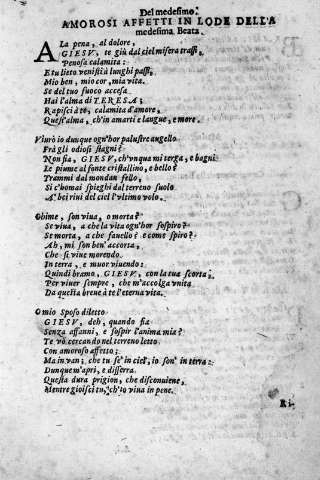 Del medesimo.
AMOROSI AFFETTI IN LODE DELL'A
medesima Beata.
A La pena, al dolore,
GIESV, te giù dal ciel misera trassi,
Penosa calamita:
E tu lieto venisti à lunghi passi,
Mio ben, mio cor, mia vita.
Se del tuo fuoco accesa
Hai l'alma di TERESA;
Rapisci à tè, calamita d'amore,
Quest'alma, ch'in amarti e langue, e more.
Viurò io dunque ogn'hor palustre augello
Frà gli odiosi stagni?
Non fia, GIESV, ch'vnqua mi terga, e bagni
Le piume al fonte cristallino, e bello?
Trammi dal mondan fello,
Si c'homai spieghi dal terreno suolo
A' bei riui del ciel l'vltimo volo.
Ohime, son viua, o morta?
Se viua, a che la vita ogn'hor sospiro?
Se morta, a che fauello? e come spiro?
Ah, mi son ben' accorta,
Che si viue morendo
In terra, e muor viuendo:
Quindi bramo, GIESV, con la tua scorta,
Per viuer sempre, che m'accolga vnita
Da questa breue à te l'eterna vita.
O mio Sposo diletto
GIESV, deh, quando fia
Senza affanni, e sospir l'anima mia?
Te vò cercando nel terreno letto
Con amoroso affetto;
Ma in van; che tu se' in ciel, io son' in terra:
Dunque m'apri, e disserra
Questa dura prigion, che disconuiene,
Mentre gioisci tu, ch'io viua in pene.
Ri-